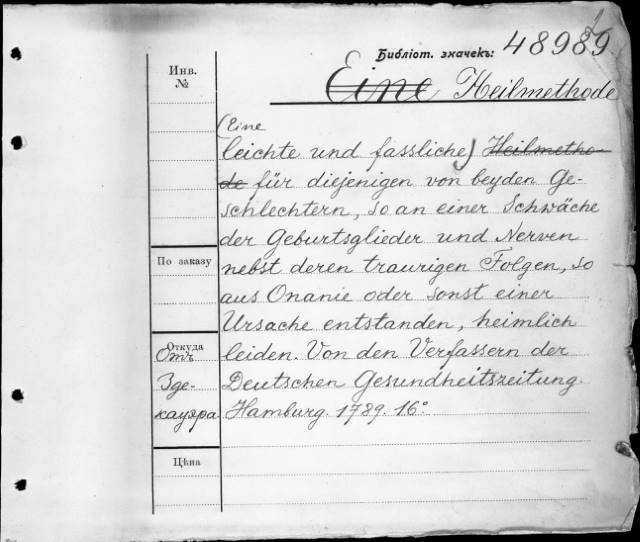 Библіот. значекъ: 48989
Инв.
№
Eine Heilmethode
(Eine
leichte und fassliche) Heilmetho-
de für diejenigen von beyden Ge-
schlechtern, so an einer Schwäche
der Geburtsglieder und Nerven
По заказу
nebst deren traurigen Folgen, so
aus Onanie oder sonst einer
Ursache entstanden, heimlich
Откуда
Отъ
leiden. Von den Verfassern der
Зде-
Deutschen Gesundheitszeitung.
кауэра
Hamburg. 1789. 16°
Цѣна